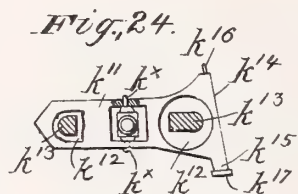 Fig. 24.
k¹⁶
k¹¹ kˣ k¹⁴
k¹³
k¹³ k¹² kˣ k¹² k¹⁵
k¹⁷